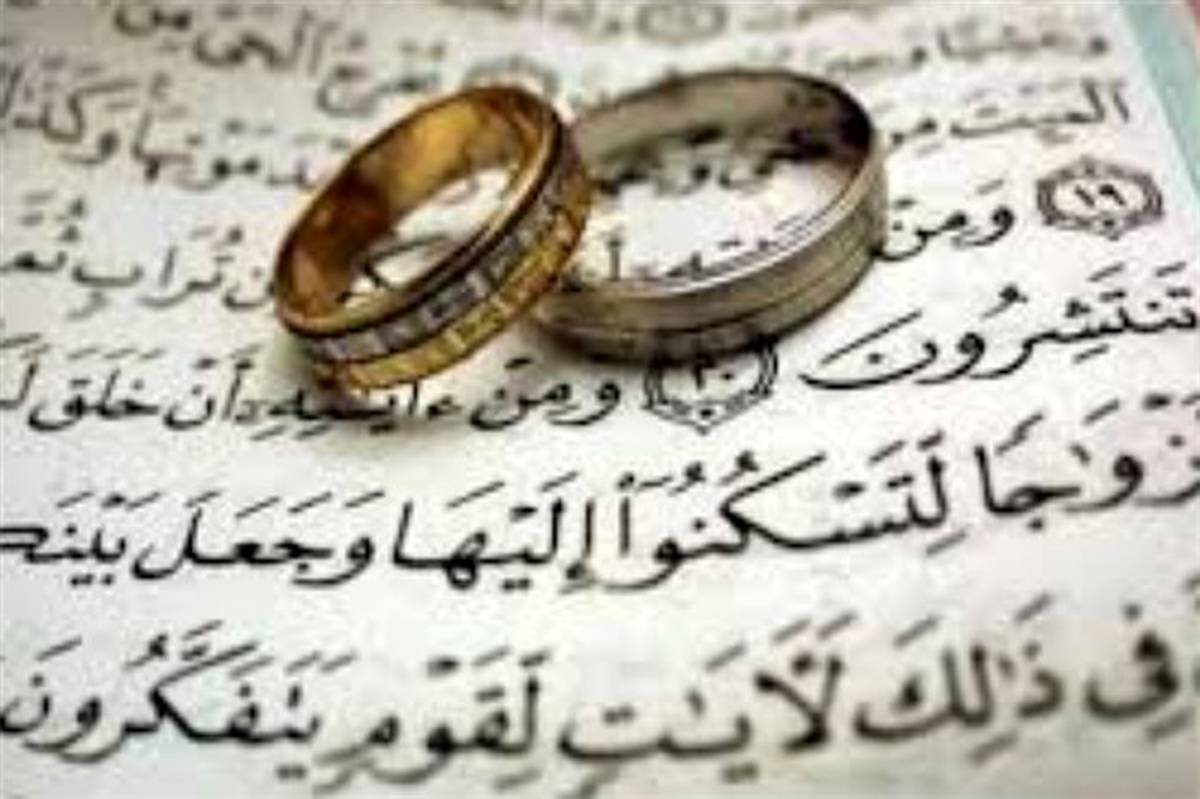 تُخْرِجُ الْحَيَّ مِنَ
الْمَيِّتَ مِنَ مَوْتِهَا وَكَذَٰلِ
١٩ وَمِنْ تُرَابٍ ثُمَّ
تَنتَشِرُونَ ٢٠ وَمِنْ ءَايَٰتِهِۦٓ أَنْ خَلَقَ لَ
زْوَٰجًا لِّتَسْكُنُوٓا۟ إِلَيْهَا وَجَعَلَ بَيْنَك
فِى ذَٰلِكَ لَءَايَٰتٍ لِّقَوْمٍ يَتَفَكَّرُونَ